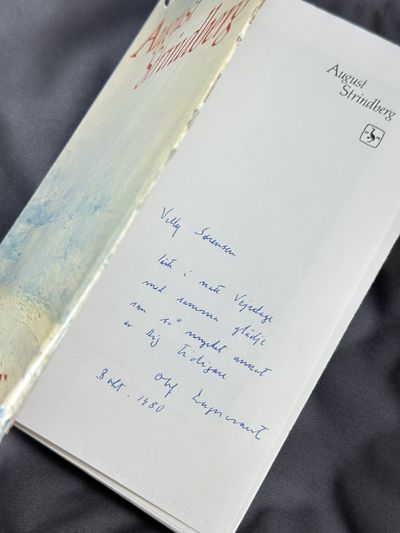 August
Strindberg
August
Strindberg
Villy Sørensen
läst i natt Vejrdage
med samma glädje
som så mycket annat
av Dig tidigare
Olof Lagercrantz
3 okt. 1980